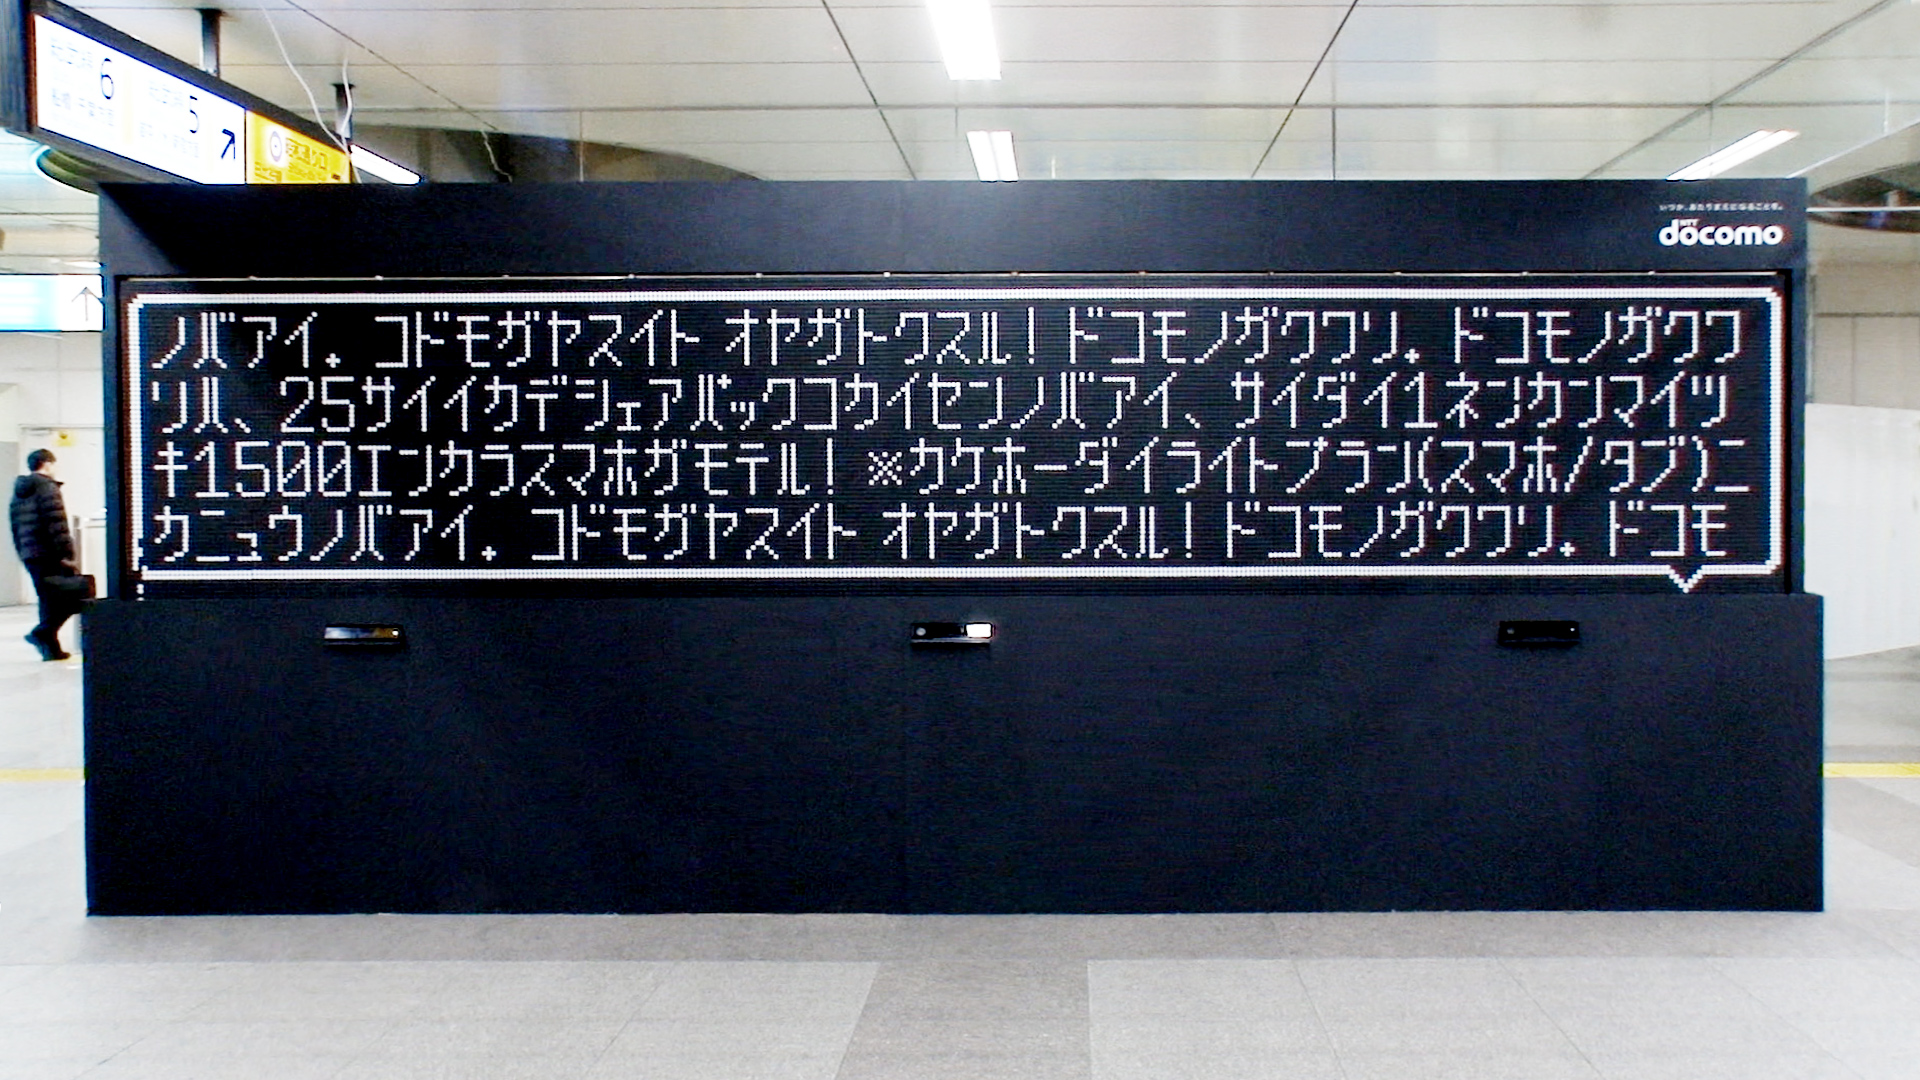 6
5
いつか、あたりまえになることを。
NTT
döcomo
ノバアイ。コドモガヤスイト オヤガトクスル!ドコモノガクワリ。ドコモノガクワ
リハ、25サイイカデシェアパックコカイセンノバアイ、サイダイ1ネンカンマイツ
キ1500エンカラスマホガモテル!※カケホーダイライトプラン(スマホ/タブ)ニ
カニュウノバアイ。コドモガヤスイト オヤガトクスル!ドコモノガクワリ。ドコモ